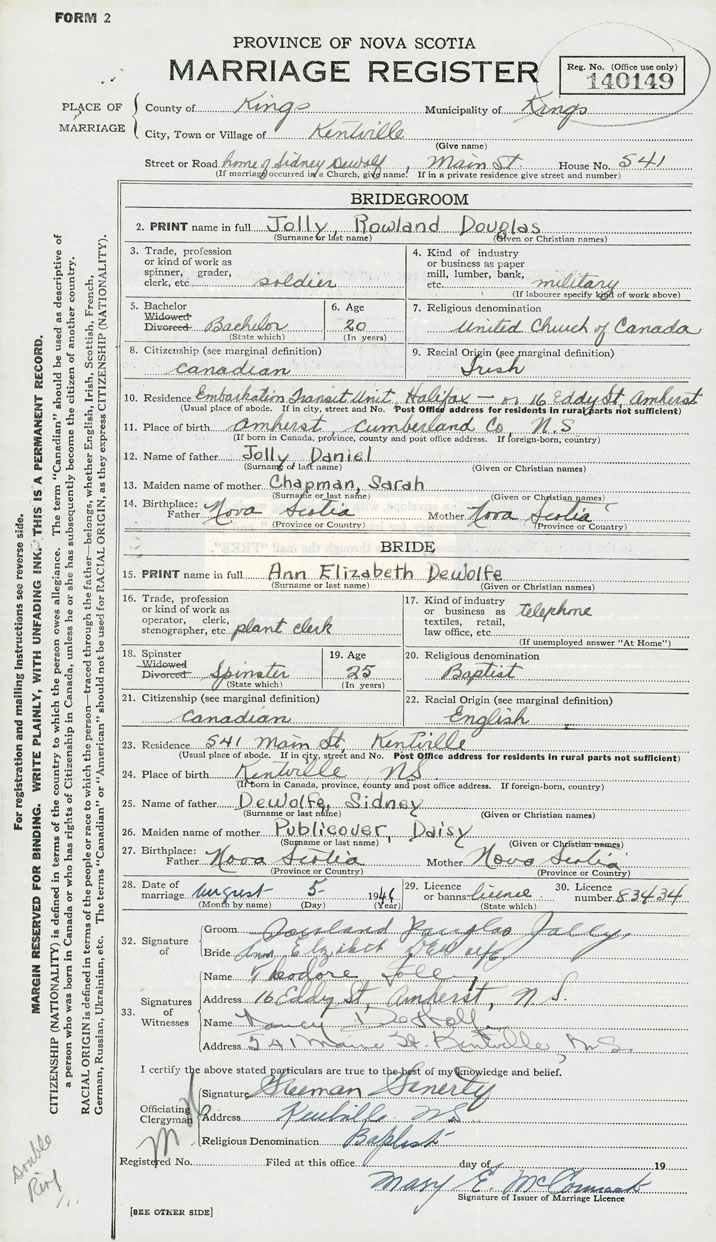 FORM 2
PROVINCE OF NOVA SCOTIA
MARRIAGE REGISTER
Reg. No. (Office use only)
140149
PLACE OF MARRIAGE
County of Kings Municipality of Kings
City, Town or Village of Kentville
(Give name)
Street or Road home of Sidney Dewolf, Main St. House No. 541
(If marriage occurred in a Church, give name. If in a private residence give street and number)
BRIDEGROOM
2. PRINT name in full Jolly, Rowland Douglas
(Surname or last name) (Given or Christian names)
3. Trade, profession
or kind of work as
spinner, grader,
clerk, etc. soldier
4. Kind of industry
or business as paper
mill, lumber, bank,
etc. military
(If labourer specify kind of work above)
5. Bachelor
Widowed
Divorced Bachelor
(State which)
6. Age
20
(In years)
7. Religious denomination
United Church of Canada
8. Citizenship (see marginal definition)
Canadian
9. Racial Origin (see marginal definition)
Irish
10. Residence Embarkation Transit Unit, Halifax — or 16 Eddy St, Amherst
(Usual place of abode. If in city, street and No. Post Office address for residents in rural parts not sufficient)
11. Place of birth Amherst, Cumberland Co, N.S
(If born in Canada, province, county and post office address. If foreign-born, country)
12. Name of father Jolly Daniel
(Surname or last name) (Given or Christian names)
13. Maiden name of mother Chapman, Sarah
(Surname or last name) (Given or Christian names)
14. Birthplace:
Father Nova Scotia Mother Nova Scotia
(Province or Country) (Province or Country)
BRIDE
15. PRINT name in full Ann Elizabeth DeWolfe
(Surname or last name) (Given or Christian names)
16. Trade, profession
or kind of work as
operator, clerk,
stenographer, etc. plant clerk
17. Kind of industry
or business as telephone
textiles, retail,
law office, etc.
(If unemployed answer "At Home")
18. Spinster
Widowed
Divorced Spinster
(State which)
19. Age
25
(In years)
20. Religious denomination
Baptist
21. Citizenship (see marginal definition)
Canadian
22. Racial Origin (see marginal definition)
English
23. Residence 541 Main St, Kentville
(Usual place of abode. If in city, street and No. Post Office address for residents in rural parts not sufficient)
24. Place of birth Kentville, N.S.
(If born in Canada, province, county and post office address. If foreign-born, country)
25. Name of father DeWolfe, Sidney
(Surname or last name) (Given or Christian names)
26. Maiden name of mother Publicover, Daisy
(Surname or last name) (Given or Christian names)
27. Birthplace:
Father Nova Scotia Mother Nova Scotia
(Province or Country) (Province or Country)
28. Date of
marriage August 5 1946
(Month by name) (Day) (Year)
29. Licence
or banns licence
(State which)
30. Licence
number 83434
32. Signature of
Groom Rowland Douglas Jolly
Bride Ann Elizabeth DeWolfe
33. Signatures of Witnesses
Name Theodore Jolly
Address 16 Eddy St, Amherst, N.S.
Name Nancy DeWolfe
Address 541 Main St. Kentville, N.S.
I certify the above stated particulars are true to the best of my knowledge and belief.
Officiating Clergyman
Signature Freeman Fenerty
Address Kentville N.S.
Religious Denomination Baptist
Registered No. Filed at this office day of 19
Mary E. McCormack
Signature of Issuer of Marriage Licence
[SEE OTHER SIDE]
For registration and mailing instructions see reverse side.
MARGIN RESERVED FOR BINDING. WRITE PLAINLY, WITH UNFADING INK. THIS IS A PERMANENT RECORD.
CITIZENSHIP (NATIONALITY) is defined in terms of the country to which the person owes allegiance. The term "Canadian" should be used as descriptive of
a person who was born in Canada or who has rights of Citizenship in Canada, unless he or she has subsequently become the citizen of another country.
RACIAL ORIGIN is defined in terms of the people or race to which the person—traced through the father—belongs, whether English, Irish, Scottish, French,
German, Russian, Ukrainian, etc. The terms "Canadian" or "American" should not be used for RACIAL ORIGIN, as they express CITIZENSHIP (NATIONALITY).
Double
Ring